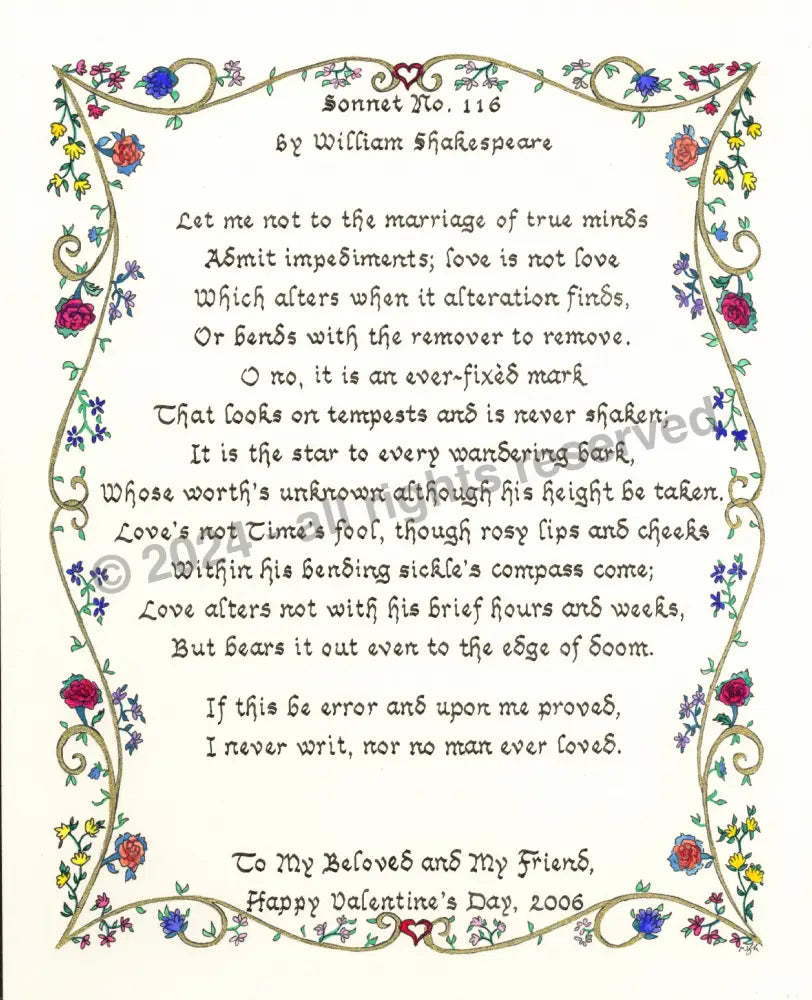 Sonnet No. 116
By William Shakespeare
Let me not to the marriage of true minds
Admit impediments; love is not love
Which alters when it alteration finds,
Or bends with the remover to remove.
O no, it is an ever-fixèd mark
That looks on tempests and is never shaken;
It is the star to every wandering bark,
Whose worth's unknown although his height be taken.
Love's not Time's fool, though rosy lips and cheeks
Within his bending sickle's compass come;
Love alters not with his brief hours and weeks,
But bears it out even to the edge of doom.
If this be error and upon me proved,
I never writ, nor no man ever loved.
To My Beloved and My Friend,
Happy Valentine's Day, 2006
© 2024 - all rights reserved